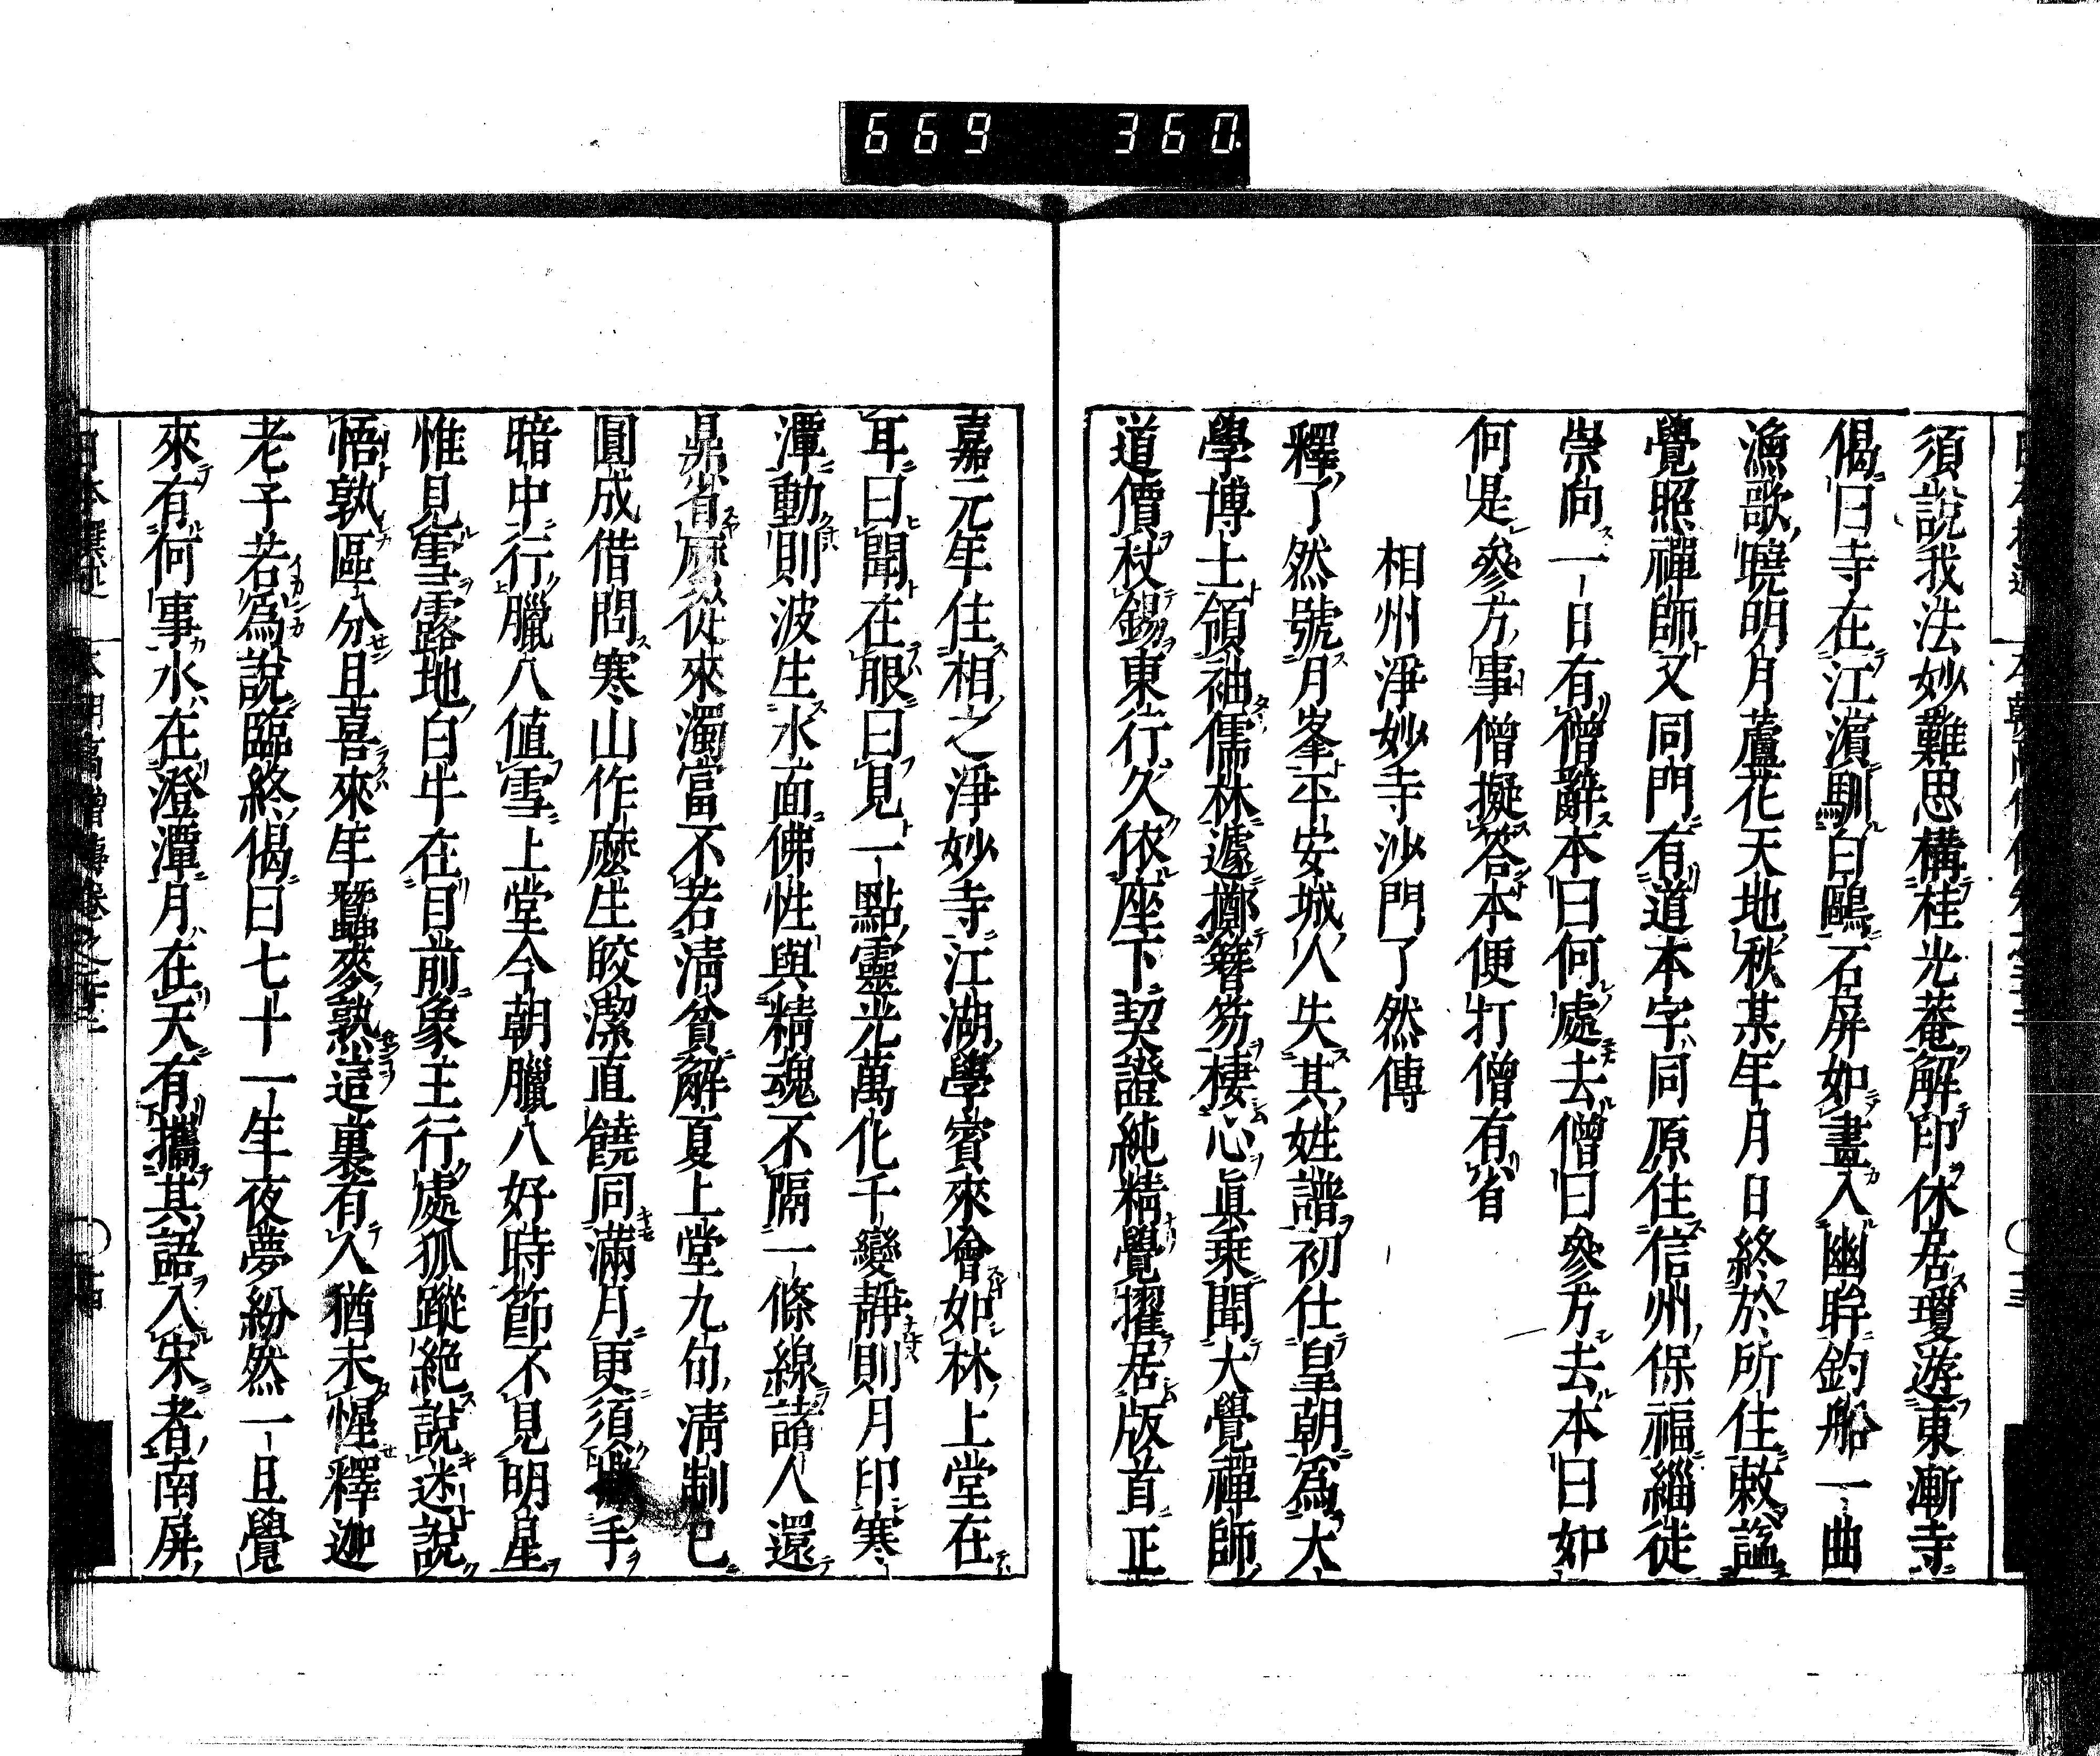 669 360
須說我法妙難思構桂光菴解印休居瓊遊東漸寺
偈曰寺在江濵馴白鷗石屏如畫入幽眸釣船一曲
漁歌曉明月蘆花天地秋某年月日終於所住敕諡
覺照禪師又同門有道本字同原住信州保福緇徒
崇向一日有僧辭本曰何處去僧曰參方去本曰如
何是參方事僧擬答本便打僧有省
相州淨妙寺沙門了然傳
釋了然號月峯平安城人失其姓譜初仕皇朝爲大
學博士領袖儒林遽擲簪笏棲心眞乘聞大覺禪師
道價杖錫東行久依座下契證純精覺擢居版首正
嘉元年住相之淨妙寺江湖學賓來噲如林上堂在
耳曰聞在眼曰見一點靈光萬化千變靜則月印寒
潭動則波生水面佛性與精魂不隔一條線諸人還
鼎省麽從來濁富不若清貧解夏上堂九旬清制已
圓成借問寒山作麽生皎潔直饒同滿月更須手
暗中行臘八値雪上堂今朝臘八好時節不見明星
惟見雪露地白牛在目前象王行處狐蹤絶說迷說
悟孰區分且喜來年蠶麥熟這裏有人猶未惺釋迦
老子若爲說臨終偈曰七十一年夜夢紛然一旦覺
來有何事水在澄潭月在天有攜其語入宋者南屏